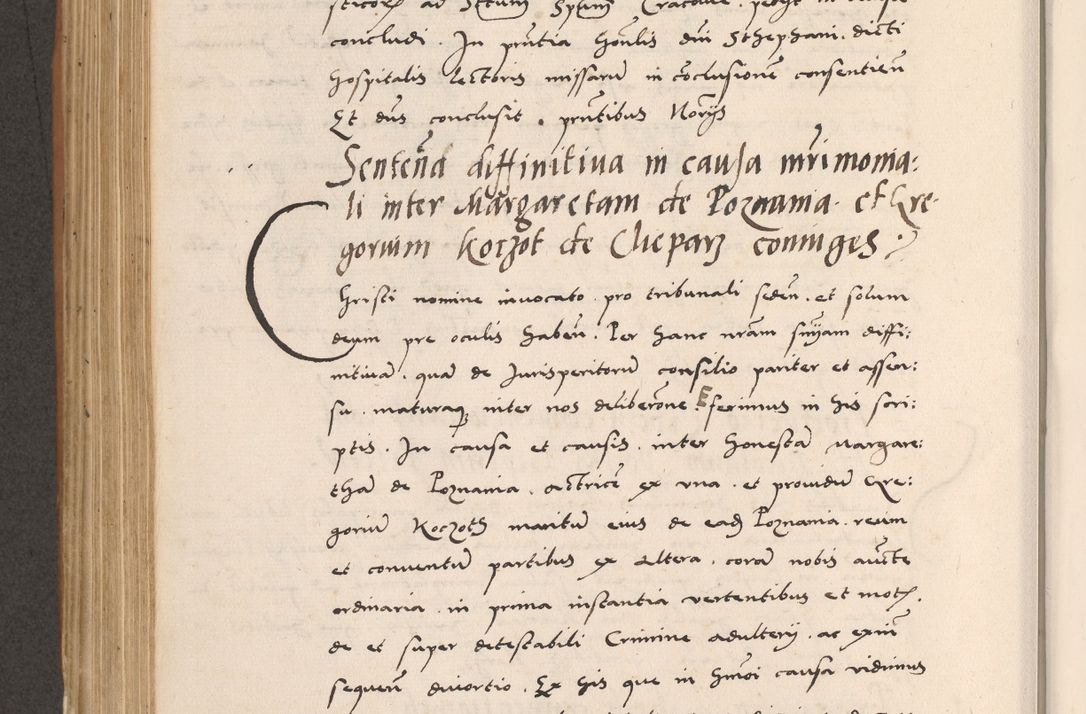 concludi. In pruntia honlis dni Sthephani. dicti
hospitalis lectoris missaru in coclusione consentien
Et dns conclusit. pruntibus Norys
Sentend diffinitiua in causa mrimonia:
li inter Margaretam de Poznania. et Gre-
gorium Koczot de Cliepars coniuges
Christi nomine inuocato. pro tribunali seden. et solum
deum pre oculis haben. Per hanc nram snyam diffi:
nitiua. qua de Jurisperitoru consilio pariter et assen:
su. maturaq inter nos deliberone. E ferimus in his scri:
ptis. In causa et causis. inter honesta Margare:
tha de Poznania. actrice ex vna. et prouidu Gre:
goriu Koczoth maritu eius de ead Poznania. reum
et conuentu partibus ex altera. cora nobis aucte
ordinaria. in prima instantia vertentibus et mot.
de et super detestabili Crimine adultery. ac exin
sequen diuortio. Ex his que in hmoi causa vidimus